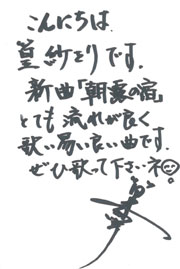 こんにちは.
皇紗をりです.
新曲「朝霧の宿」
とても流れが良く
歌い易い良い曲です.
ぜひ歌って下さいネ